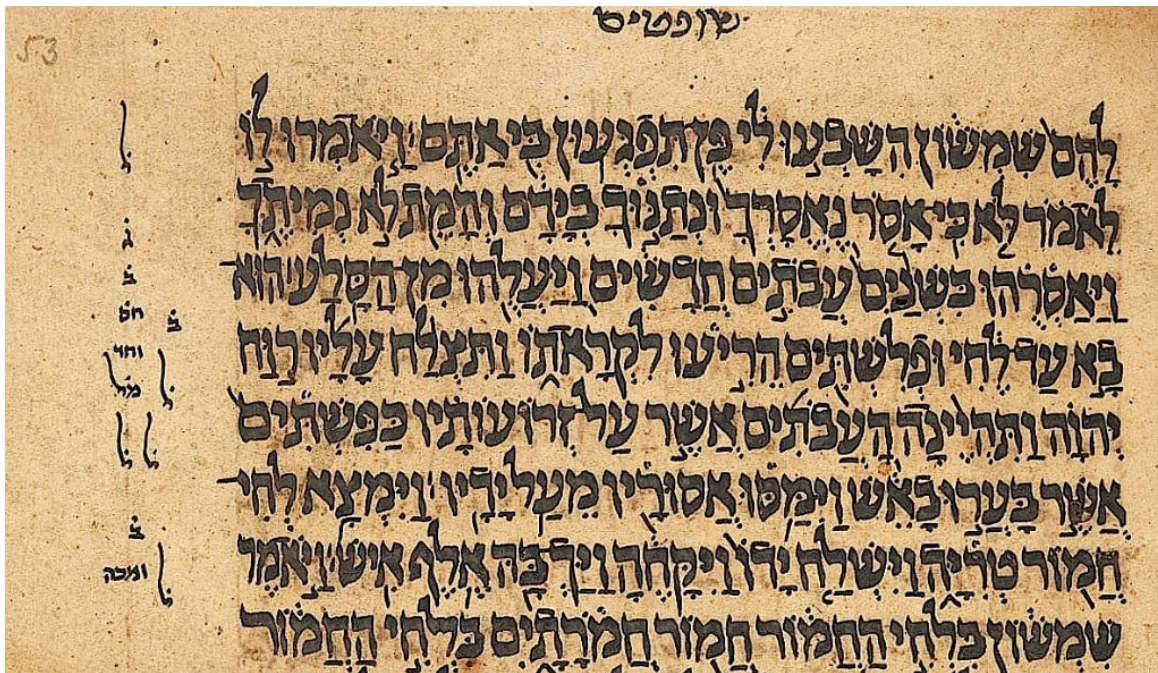 שופטים
53
לָהֶם שִׁמְשׁוֹן הִשָּׁבְעוּ לִי פֶּן תִּפְגְּעוּן בִּי אַתֶּם׃ וַיֹּאמְרוּ לוֹ
ל
לֵאמֹר לֹא כִּי אָסֹר נֶאֱסָרְךָ וּנְתַנּוּךָ בְיָדָם וְהָמֵת לֹא נְמִיתֶךָ
ג
וַיַּאַסְרֻהוּ בִּשְׁנַיִם עֲבֹתִים חֲדָשִׁים וַיַּעֲלֻהוּ מִן הַסָּלַע׃ הוּא
ב
בָא עַד לֶחִי וּפְלִשְׁתִּים הֵרִיעוּ לִקְרָאתוֹ וַתִּצְלַח עָלָיו רוּחַ
ב חס
ל וחד מל
יְהוָה וַתִּהְיֶינָה הָעֲבֹתִים אֲשֶׁר עַל זְרוֹעוֹתָיו כַּפִּשְׁתִּים
ל ל
אֲשֶׁר בָּעֲרוּ בָאֵשׁ וַיִּמַּסּוּ אֱסוּרָיו מֵעַל יָדָיו׃ וַיִּמְצָא לְחִי
ב
חֲמוֹר טְרִיָּה וַיִּשְׁלַח יָדוֹ וַיִּקָּחֶהָ וַיַּךְ בָּהּ אֶלֶף אִישׁ׃ וַיֹּאמֶר
ל ומכה
שִׁמְשׁוֹן בִּלְחִי הַחֲמוֹר חֲמוֹר חֲמֹרָתָיִם בִּלְחִי הַחֲמוֹר